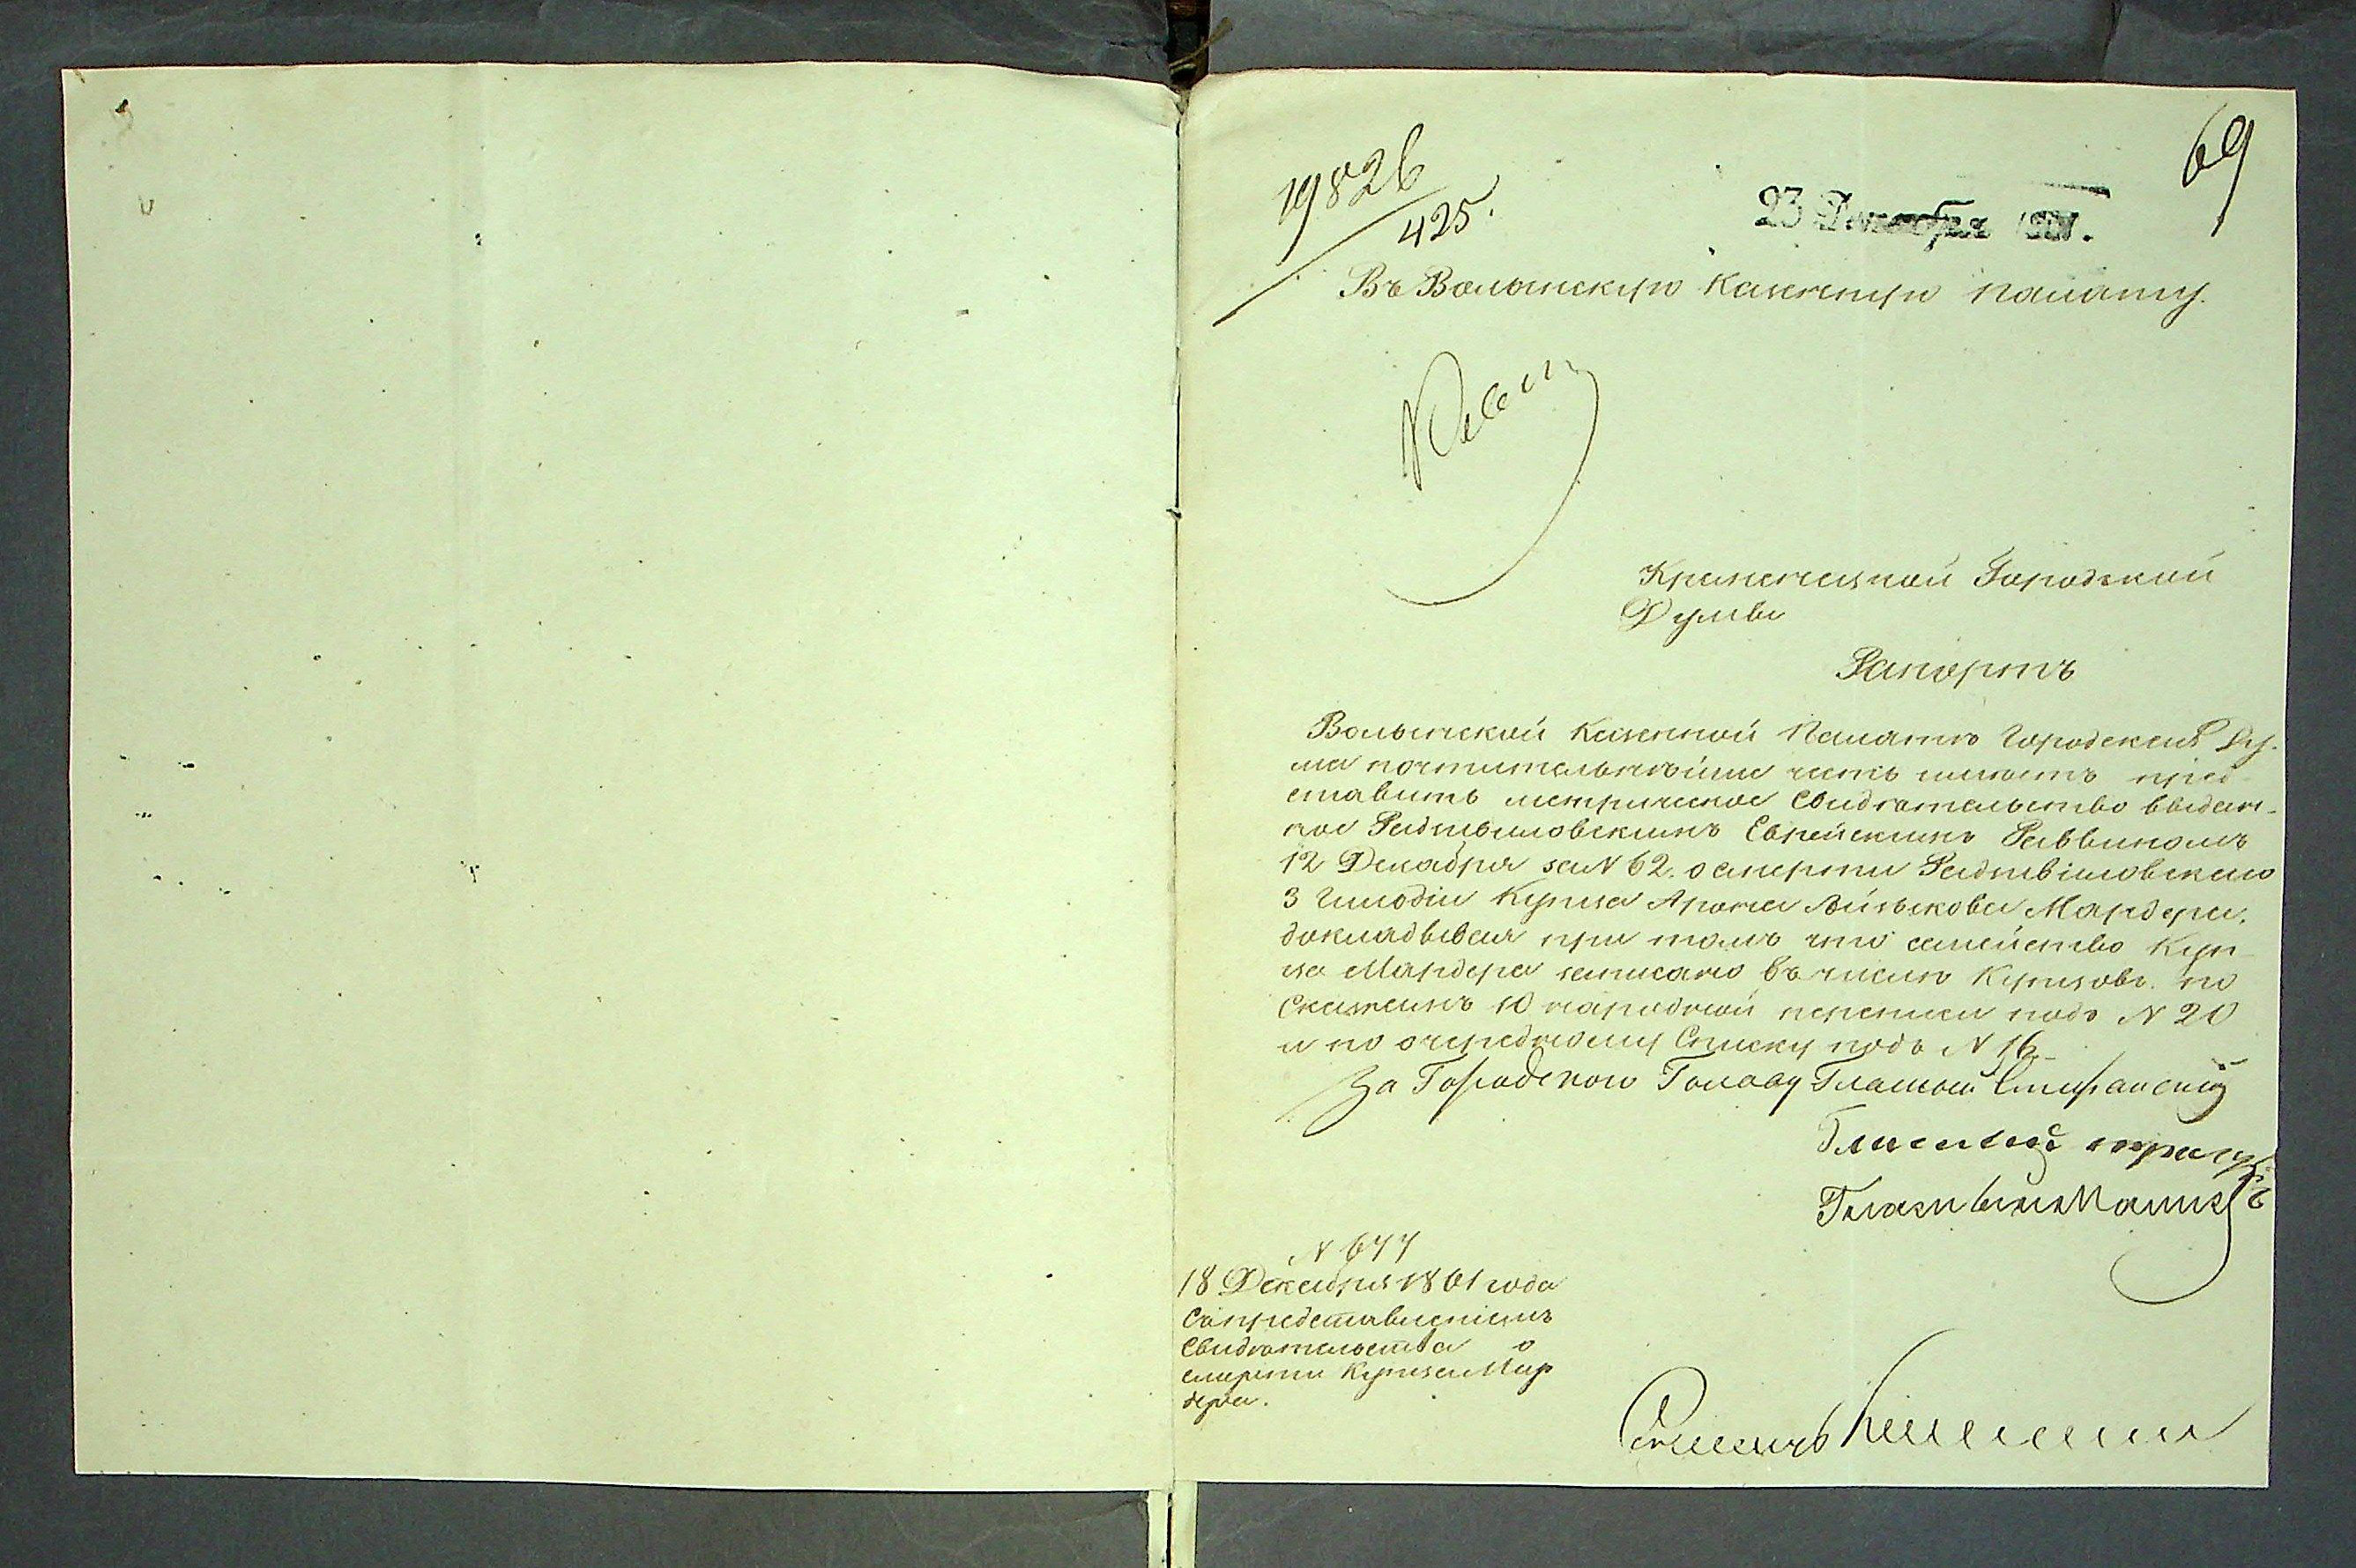 69
19826
425.
23 Декабря 1861.
Въ Волынскую Казенную Палату.
Кременецкой Городской
Думы
Рапортъ
Волынской Казенной Палатѣ Городская Ду-
ма почтительнѣйше честь имѣетъ пред-
ставить метрическое Свидѣтельство выдан-
ное Радзивиловскимъ Еврейскимъ Раввиномъ
12 Декабря за N 62. о смерти Радзивиловскаго
3 Гильдіи Купца Арона Мардера,
докладывая при томъ что семейство Куп-
ца Мардера записано въ числѣ Купцовъ по
Сказкамъ 10 народной переписи подъ N 20
и по очередному Списку подъ N 16.
За Городскаго Голову Гласный
Гласный
Гласный
N 677
18 Декабря 1861 года
Съ представленіемъ
Свидѣтельства о
смерти Купца Мар
дера.